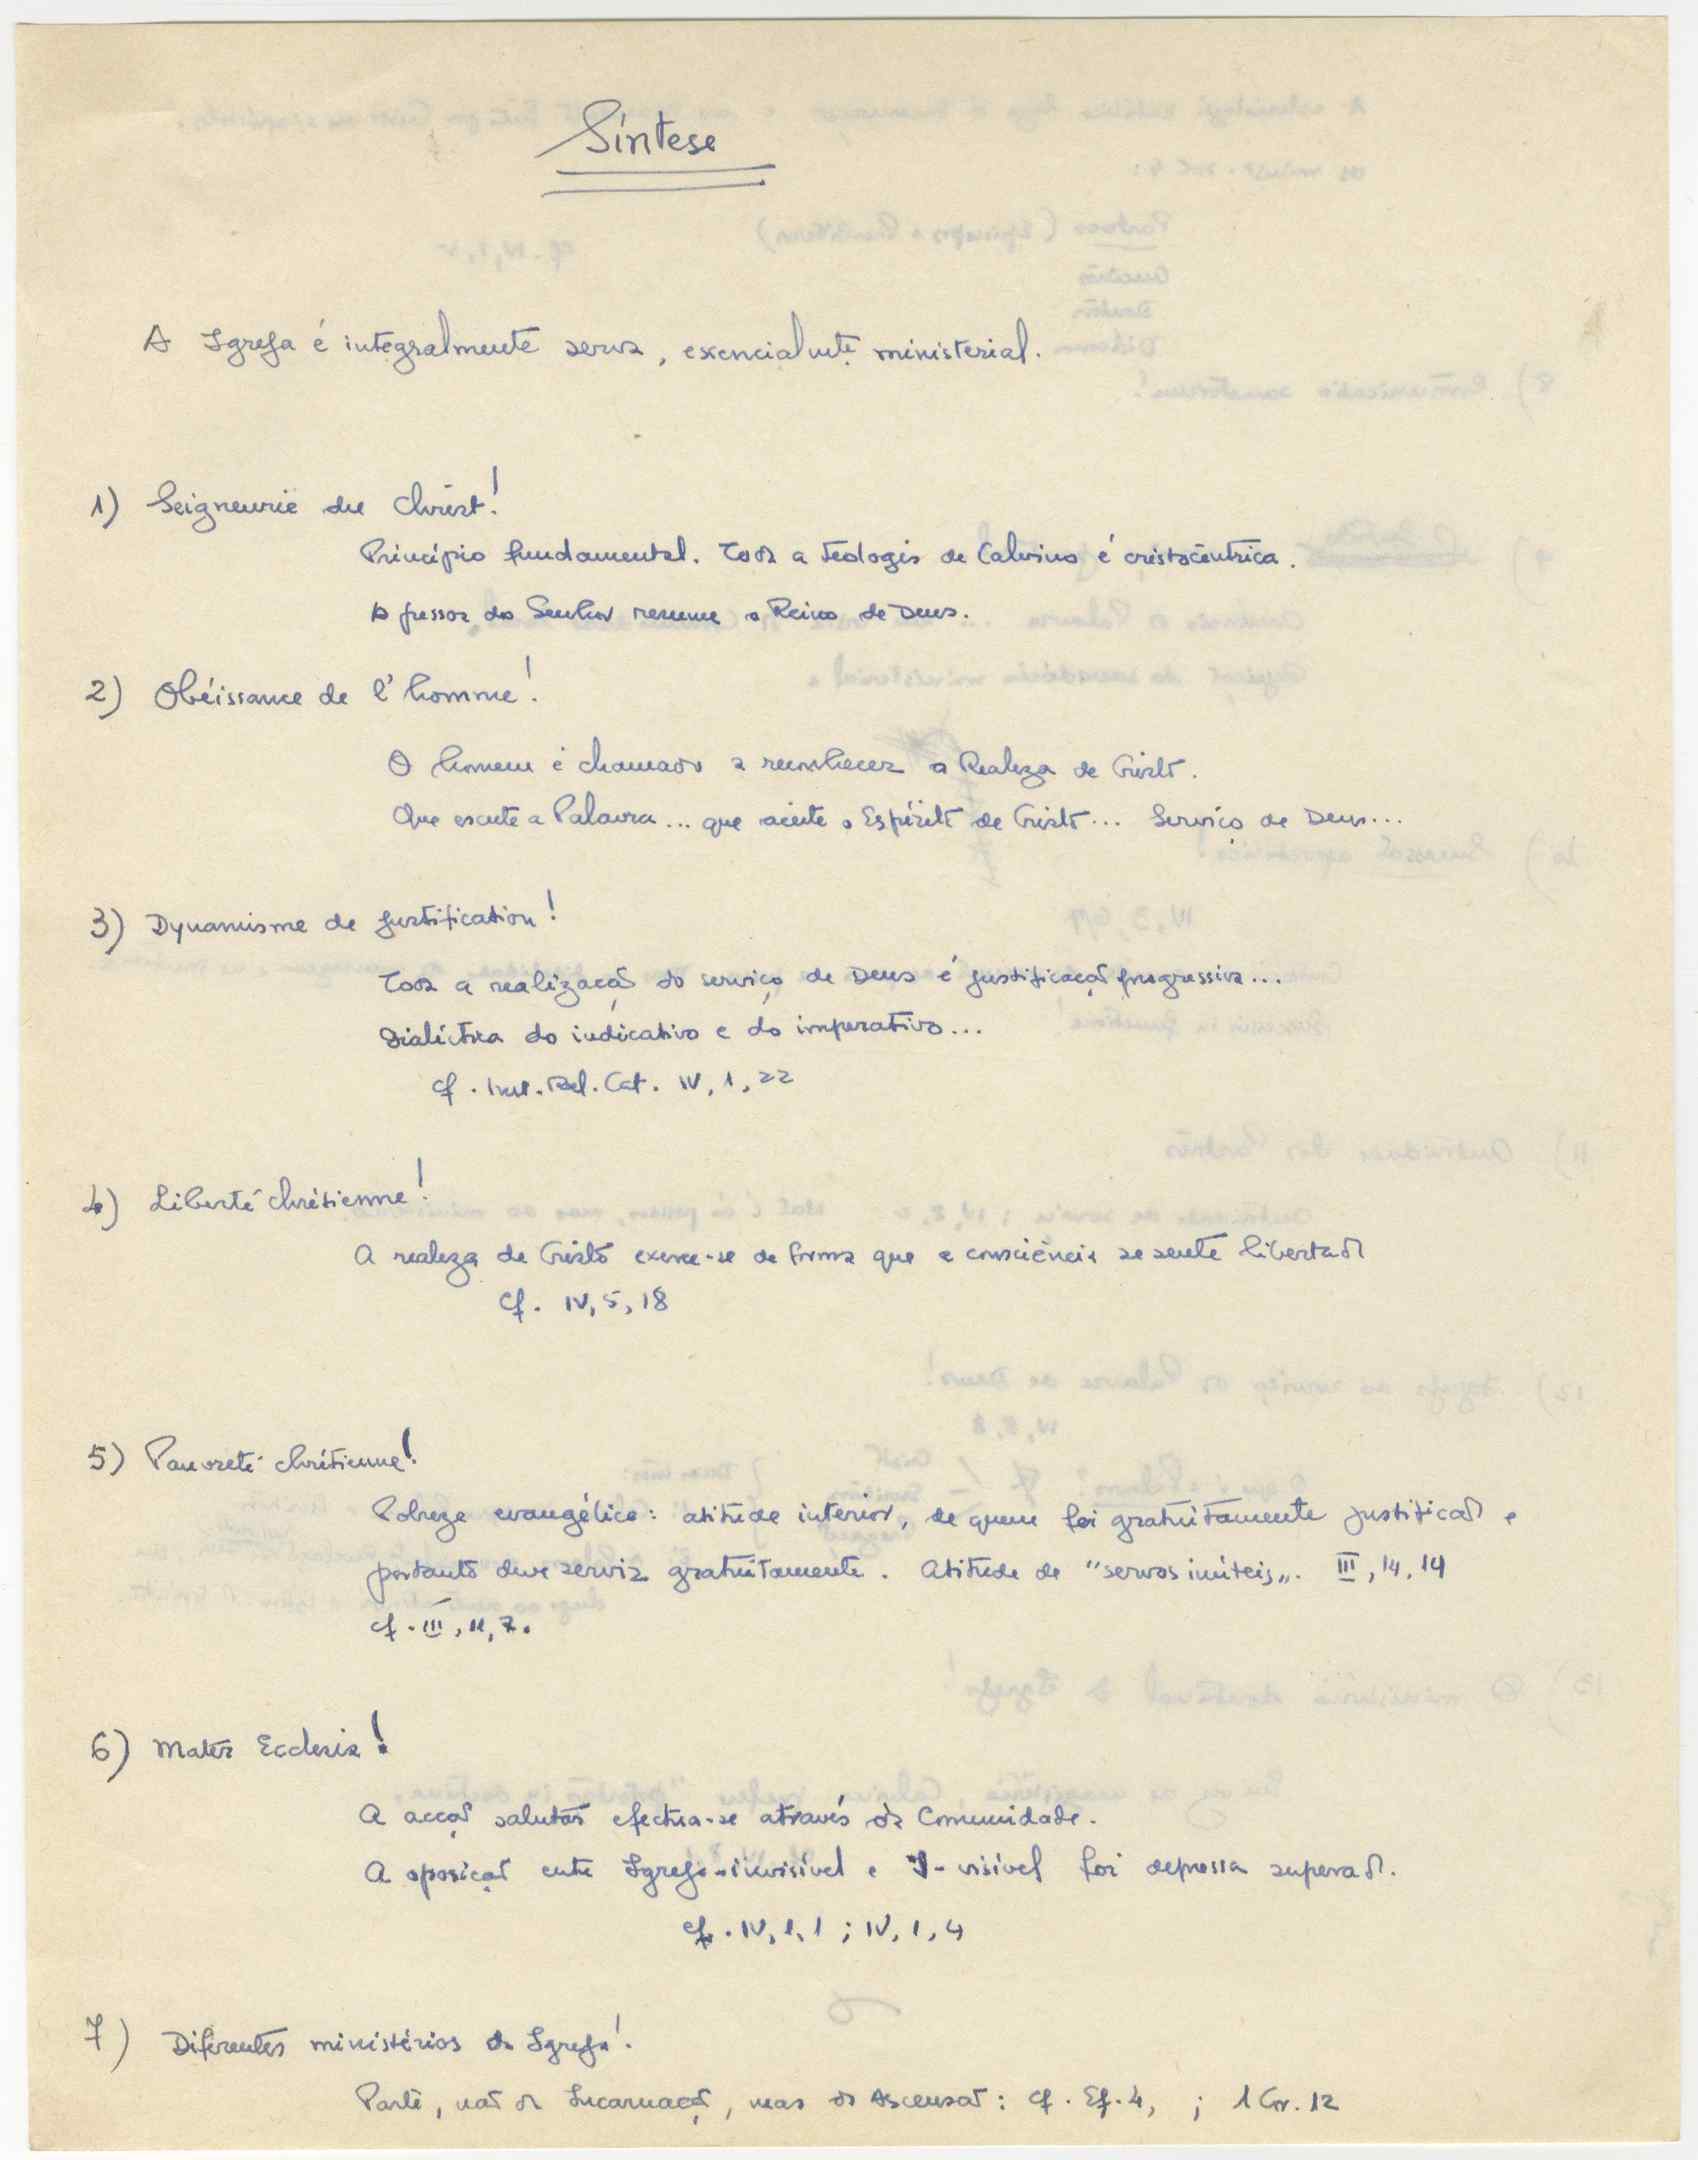 Síntese
A Igreja é integralmente serva, exencialmte ministerial.
1) Seigneurie du Christ!
Princípio fundamental. Toda a teologia de Calvino é cristocêntrica.
A pessoa do Senhor resume o Reino de Deus.
2) Obéissance de l'homme!
O homem é chamado a reconhecer a Realeza de Cristo.
Que escute a Palavra... que aceite o Espírito de Cristo... Serviço de Deus...
3) Dynamisme de justification!
Toda a realização do serviço de Deus é justificação progressiva...
Dialéctica do indicativo e do imperativo...
cf. Inst. Rel. Cat. IV, 1, 22
4) Liberté chrétienne!
A realeza de Cristo exerce-se de forma que a consciência se sente libertada
Cf. IV, 5, 18
5) Pauvreté chrétienne!
Pobreza evangélica: atitude interior, de quem foi gratuitamente justificado e
portanto deve servir gratuitamente. Atitude de "servos inúteis". III, 14, 14
cf. III, 11, 7.
6) Mater Ecclesia!
A acção salutar efectua-se através da Comunidade.
A oposição entre Igreja-invisível e I-visível foi depressa superada.
cf. IV, 1, 1 ; IV, 1, 4
7) Diferentes ministérios da Igreja!
Parte, não da Incarnação, mas da Ascensão: cf. Ef. 4, ; 1 Cor. 12